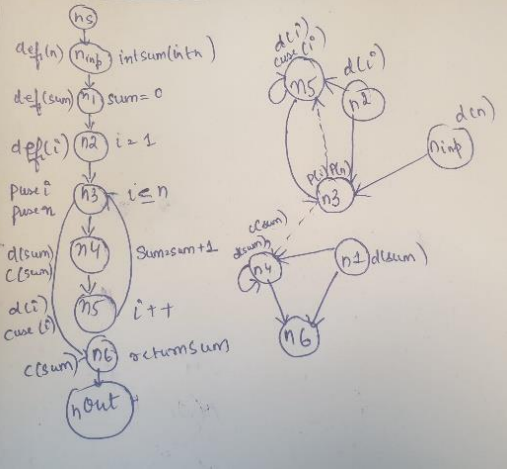 ns
def(n) ninp int sum(int n)
def(sum) n1 sum = 0
def(i) n2 i = 1
puse i
puse n
n3 i ≤ n
d(sum)
c(sum)
n4 Sum=sum+1
d(i)
cuse(i)
n5 i++
c(sum) n6 return sum
nout
d(i)
cuse(i)
n5
d(i)
n2
d(n)
ninp
p(i) p(n)
n3
c(sum)
n4
n1 d(sum)
n6